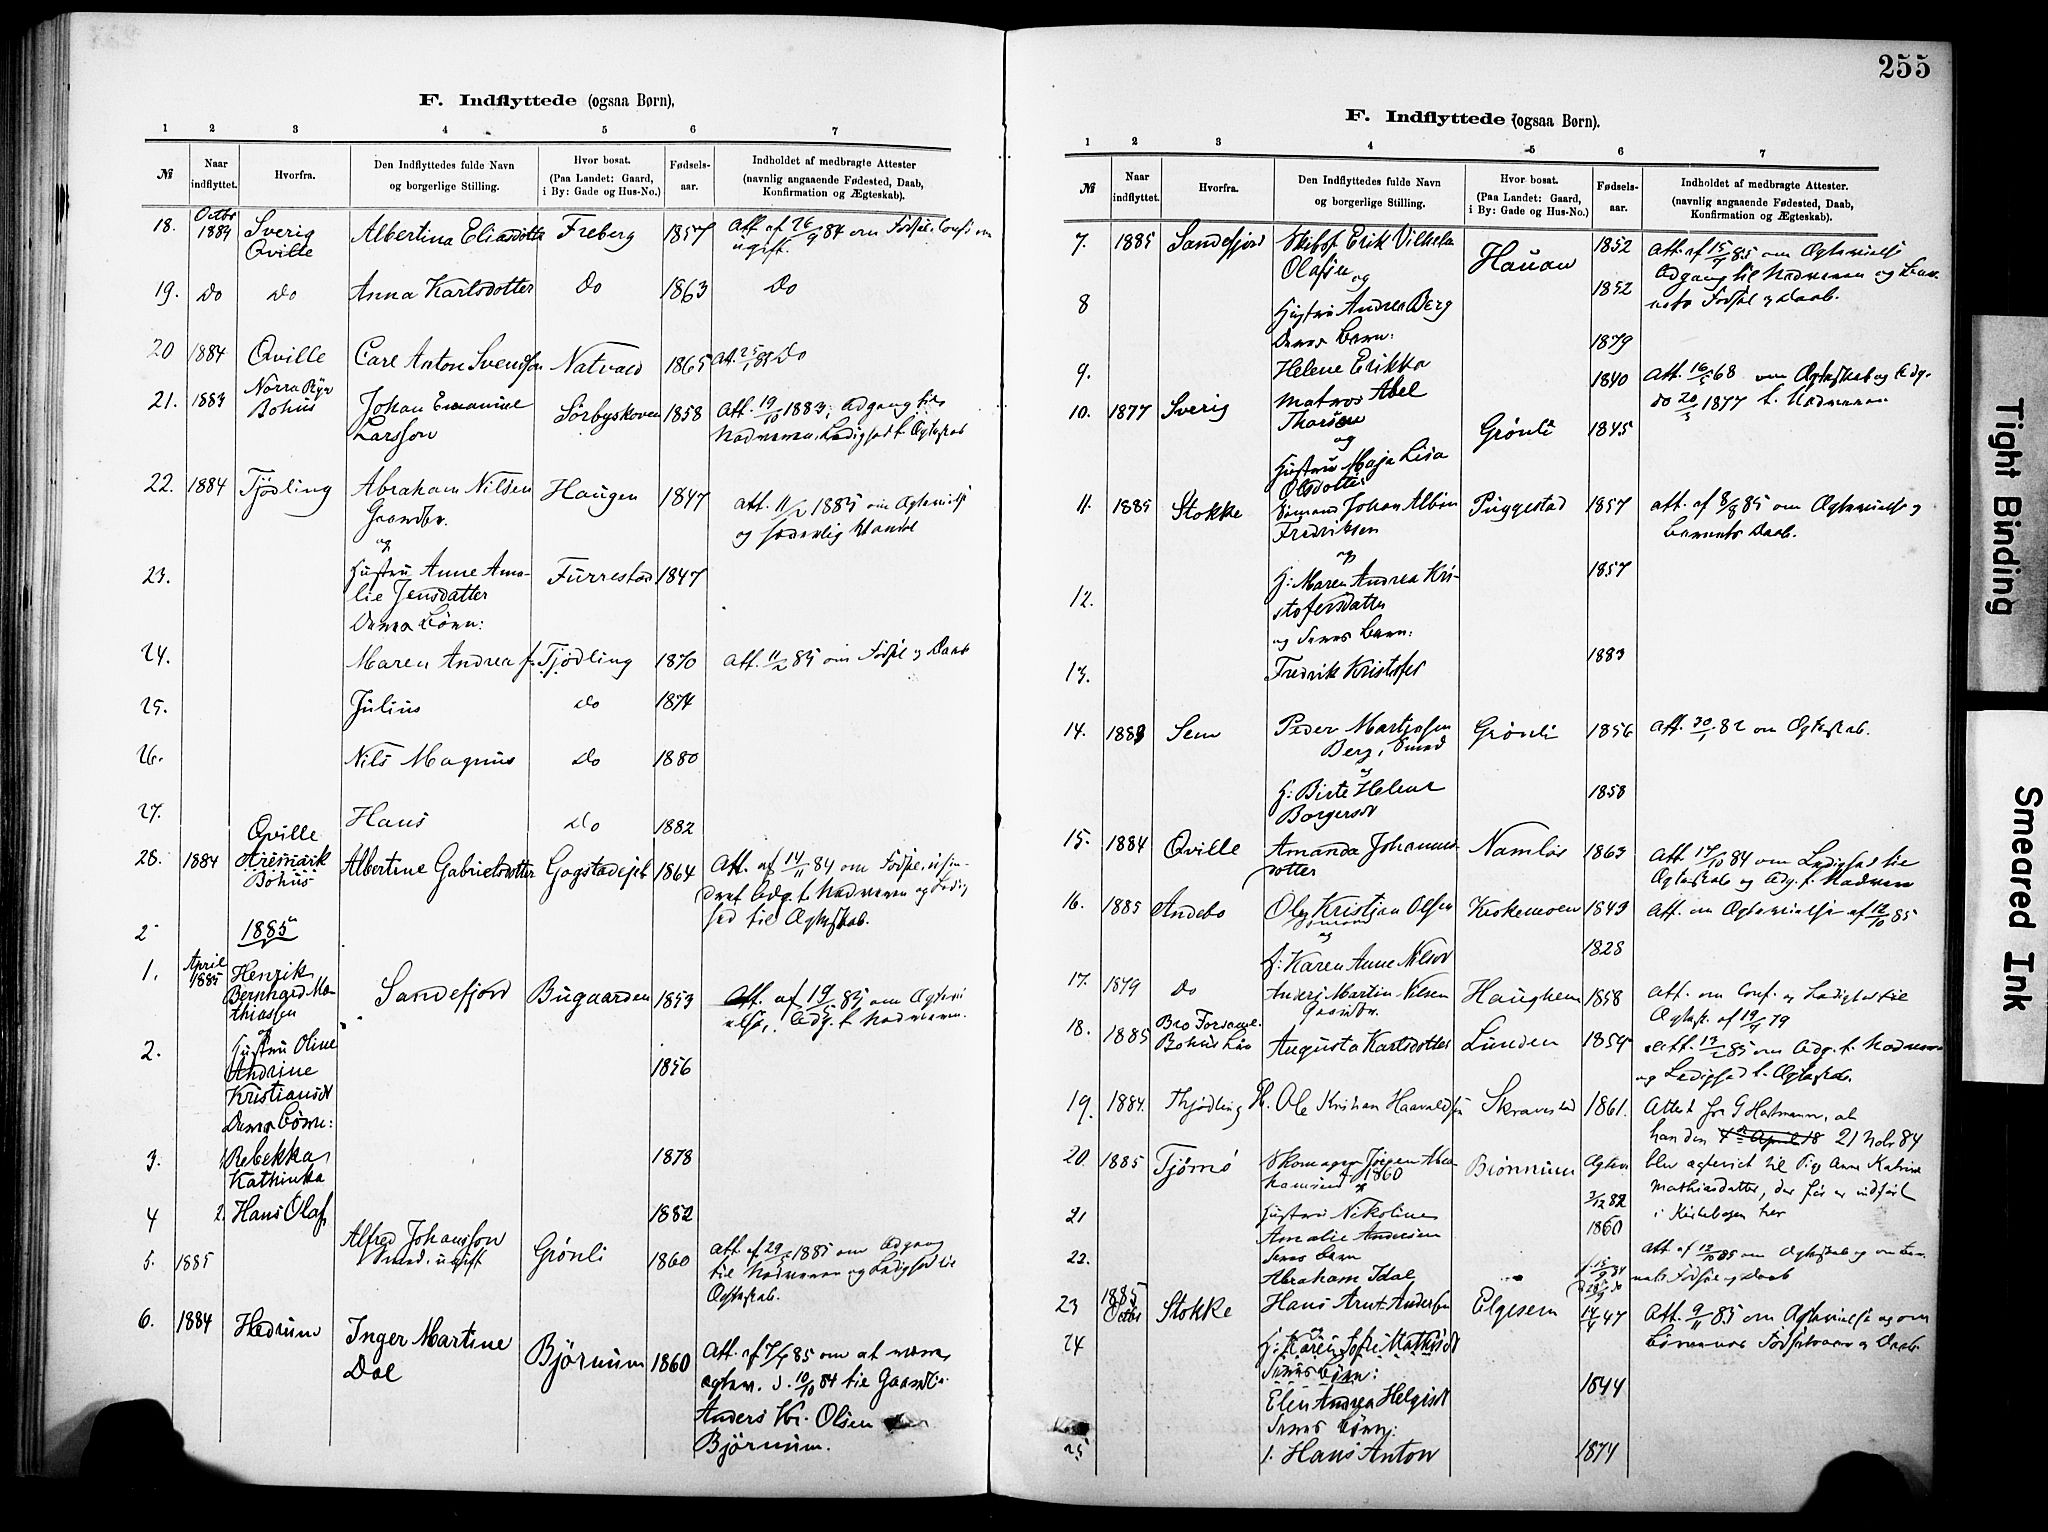 F. Indflyttede (ogsaa Børn),
1 2 3 4 5 6 7
№
Naar indflyttet.
Hvorfra.
Den Indflyttedes fulde Navn og borgerlige Stilling.
Hvor bosat. (Paa Landet: Gaard, i By: Gade og Hus-No.)
Fødsels-aar.
Indholdet af medbragte Attester (navnlig angaaende Fødested, Daab, Konfirmation og Ægteskab).
18. Octbr 1884 Sverig Qville Albertina Eliasdotter Freberg 1857 Att af 26/9 84 om Fødsel, Conf. om
ugift.
19. Do Do Anna Karlsdotter Do 1863 Do
20 1884 Qville Carl Anton Svendson Natvald 1865 Att. Do
21. 1883 Norra Bohus Johan Emanuel Sørbyskoven 1858 Att. 19/10 1883, Adgang til
Larsson Nadveren, Ledighed t. Ægteskab
22. 1884 Tjødling Abraham Nilsen Haugen 1847 Att. 11/2 1885 om Ægtevielse
Gaardbr. og sædvanlig Vandel
og
23. Hustru Anne Ama- Furrestad 1847
lie Jensdatter
Deres Børn:
24. Maren Andrea f. Tjødling 1870 Att. 11/2 85 om Fødsel og Daab
25. Julius Do 1874
26. Nils Magnus Do 1880
27. Hans Do 1882
Qville
28. 1884 Aremark Albertine Gabrielsdotter Gogstadejet 1864 Att. af 14/11 84 om Fødsel,
Bohus Adg. t. Nadveren og Ledig-
hed til Ægteskab.
2 1885
1. April 1885 Henrik
Bernhard Ma- Sandefjord Bugaarden 1853 Att. af 19/5 85 om Ægtevi
thiassen else, Adg. t. Nadveren.
og
2. Hustru Oline 1856
Andrine
Kristiansdt
Deres Børn:
3. 1 Rebekka 1878
Kathinka
4 2. Hans Olaf 1882
5. 1885 Alfred Johansson Grønli 1860 Att. af 29/ 1885 om Adgang
Smed, ugift til Nadveren og Ledighed til
Ægteskab.
6. 1884 Hedrum Inger Martine Bjørnum 1860 Att. af 7/ 85 om at være
Dal ægtev. d. 10/10 84 til Gaardbr.
Anders Kr. Olsen
Bjørnum.
255
F. Indflyttede (ogsaa Børn).
1 2 3 4 5 6 7
№
Naar indflyttet.
Hvorfra.
Den Indflyttedes fulde Navn og borgerlige Stilling.
Hvor bosat. (Paa Landet: Gaard, i By: Gade og Hus-No.)
Fødsels-aar.
Indholdet af medbragte Attester. (navnlig angaaende Fødested, Daab, Konfirmation og Ægteskab).
7. 1885 Sandefjord Erik Vilhelm 1852 Att. af 15/ 85 om Ægtevielse
Olafsen og Hauan Adgang til Nadveren og Bar-
8 Hustru Andrea Berg 1852 nets Fødsel og Daab.
Deres Barn:
9. Helene Erikka 1879
10. 1877 Sverig Matros Abel 1840 Att. 16/5 68 om Ægteskab og Adg.
Thorsen do 20/3 1877 t. Nadveren
og
Hustru Maja Lisa Grønli 1845
Olsdotter
11. 1885 Stokke Sømand Johan Albin Puggestad 1857 Att. af 8/8 85 om Ægtevielse og
Fredriksen Barnets Daab.
og
12. H: Maren Andrea Kri- 1857
stofersdatter
og deres Barn:
13. Fredrik Kristofer 1883
14. 1883 Sem Peder Martinsen Grønli 1856 Att. 30/1 82 om Ægteskab.
Berg, Smed
og
H: Birte Helene 1858
Borgersdt
15. 1884 Qville Amanda Johannes Namløs 1863 Att 14/10 84 om Ledighed til
dotter Ægteskab og Adg. t. Nadveren
16. 1885 Andebo Ole Kristian Olsen Kirkemoen 1843 Att. om Ægtevielse af 12/10 85
og
H: Karen Anne Nilsdt 1828
17. 1879 Do Anders Martin Nilsen Haughem 1858 Att. om Conf. og Ledighed til
Gaardbr. Ægtesk. af 19/4 79
18. 1885 Bro Forsaml. Augusta Karlsdotter Lunden 1859 Att. 13/2 85 om Adg. t. Nadveren
Bohus Län og Ledighed t. Ægteskab.
19. 1884. Thjødling Ole Kristian Haavaldsen Skravestad 1861. Attest fra G Hartmann, at
han den 4de April 18 21 Nobr 84
20. 1885 Tjømø Skomager Jørgen Abra- Brønnum Ægtev blev ægteviet til Pige Anne Katrine
hamsen 1860 3/12 82 Mathiasdatter, der før er indført
21 Hustru Nikoline 1860 i Kirkebogen her
Amalie Andersen
22. deres Barn Att af 12/10 85 om Ægteskab og om Bar-
Abraham Idal f. 15/9 84 nets Fødsel og Daab
23 1885 Octbr Stokke Hans Arnt Andersen Elgesem 14/4 47 Att. 9/11 85 om Ægtevielse og om
og Børnenes Fødselsaar og Daab.
24 H: Karen Sofie Mathisdt
deres Børn:
Elen Andrea Helgisdt 1844
deres Børn:
25 1. Hans Anton 1874
Tight Binding
Smeared Ink